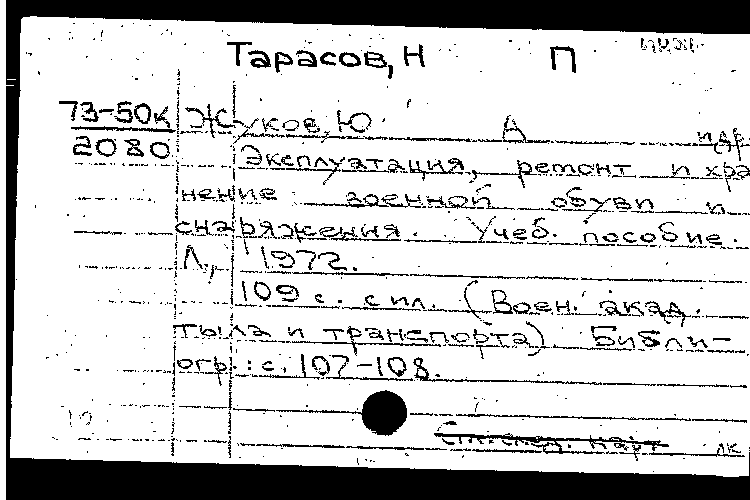 Тарасов, Н П
73-50к Жуков, Ю А и др
2080
Эксплуатация, ремонт и хра
нение военной обуви и
снаряжения. Учеб. пособие.
Л., 1972.
109 с. с ил. (Воен. акад.
тыла и транспорта). Библи-
огр.: с. 107-108.
лк